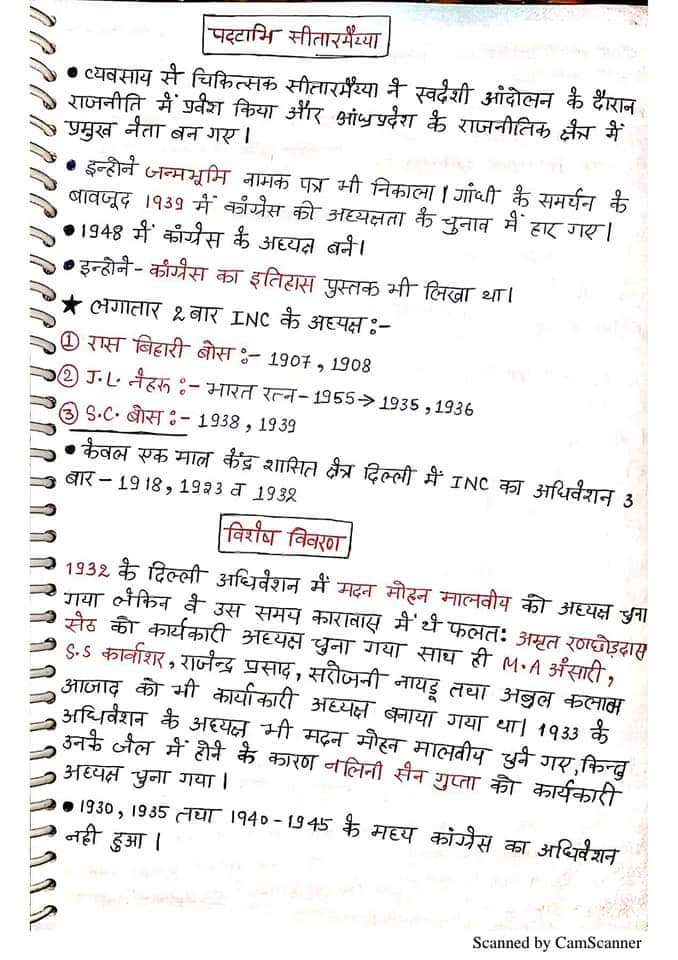 पट्टाभि सीतारमैय्या
• व्यवसाय से चिकित्सक सीतारमैय्या ने स्वदेशी आंदोलन के दौरान
राजनीति में प्रवेश किया और आंध्रप्रदेश के राजनीतिक क्षेत्र में
प्रमुख नेता बन गए।
• इन्होने जन्मभूमि नामक पत्र भी निकाला। गांधी के समर्थन के
बावजूद 1939 में कांग्रेस की अध्यक्षता के चुनाव में हार गए।
• 1948 में कांग्रेस के अध्यक्ष बने।
• इन्होने - कांग्रेस का इतिहास पुस्तक भी लिखा था।
★ लगातार 2 बार INC के अध्यक्ष :-
① रास बिहारी बोस :- 1907, 1908
② J.L. नेहरू :- भारत रत्न - 1955 → 1935, 1936
③ S.C. बोस :- 1938, 1939
• केवल एक मात्र केंद्र शासित क्षेत्र दिल्ली में INC का अधिवेशन 3
बार - 1918, 1923 व 1932
विशेष विवरण
1932 के दिल्ली अधिवेशन में मदन मोहन मालवीय को अध्यक्ष चुना
गया लेकिन वे उस समय कारावास में थे फलत: अमृत रणछोड़दास
सेठ को कार्यकारी अध्यक्ष चुना गया साथ ही M.A अंसारी,
S.S कार्वाशर, राजेन्द्र प्रसाद, सरोजनी नायडू तथा अबुल कलाम
आजाद को भी कार्याकारी अध्यक्ष बनाया गया था। 1933 के
अधिवेशन के अध्यक्ष भी मदन मोहन मालवीय चुने गए, किन्तु
उनके जेल में होने के कारण नलिनी सेन गुप्ता को कार्यकारी
अध्यक्ष चुना गया।
• 1930, 1935 तथा 1940-1945 के मध्य कांग्रेस का अधिवेशन
नही हुआ।
Scanned by CamScanner